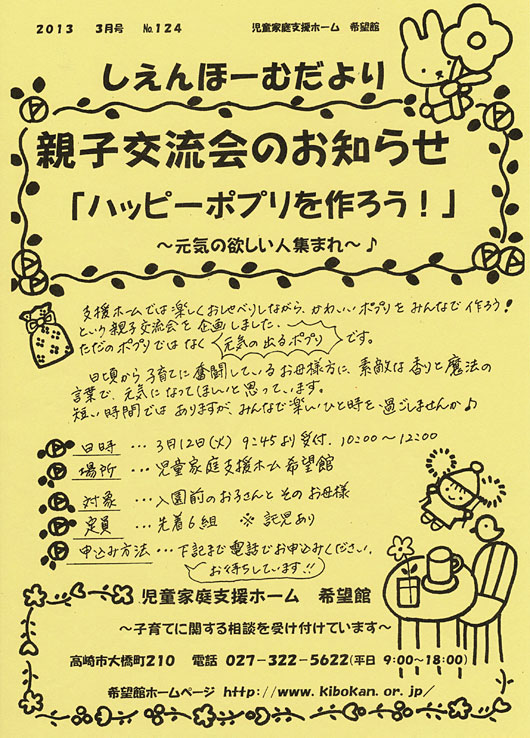 2013 3月号 No.124 児童家庭支援ホーム 希望館
しえんほーむだより
親子交流会のお知らせ
「ハッピーポプリを作ろう！」
～元気の欲しい人集まれ～♪
支援ホームでは楽しくおしゃべりしながら、かわいいポプリをみんなで作ろう!
という親子交流会を企画しました。
ただのポプリではなく 元気の出るポプリ です。
日頃から子育てに奮闘しているお母様方に、素敵な香りと魔法の
言葉で、元気になってほしいと思っています。
短い時間ではありますが、みんなで楽しいひと時を過ごしませんか♪
日時 … 3月12日(火) 9:45より受付. 10:00～12:00
場所 … 児童家庭支援ホーム希望館
対象 … 入園前のお子さんとそのお母様
定員 … 先着6組 ※託児あり
申込み方法 … 下記まで電話でお申込みください.
お待ちしています!!
児童家庭支援ホーム 希望館
～子育てに関する相談を受け付けています～
高崎市大橋町210 電話 027-322-5622(平日 9:00～18:00)
希望館ホームページ http://www.kibokan.or.jp/